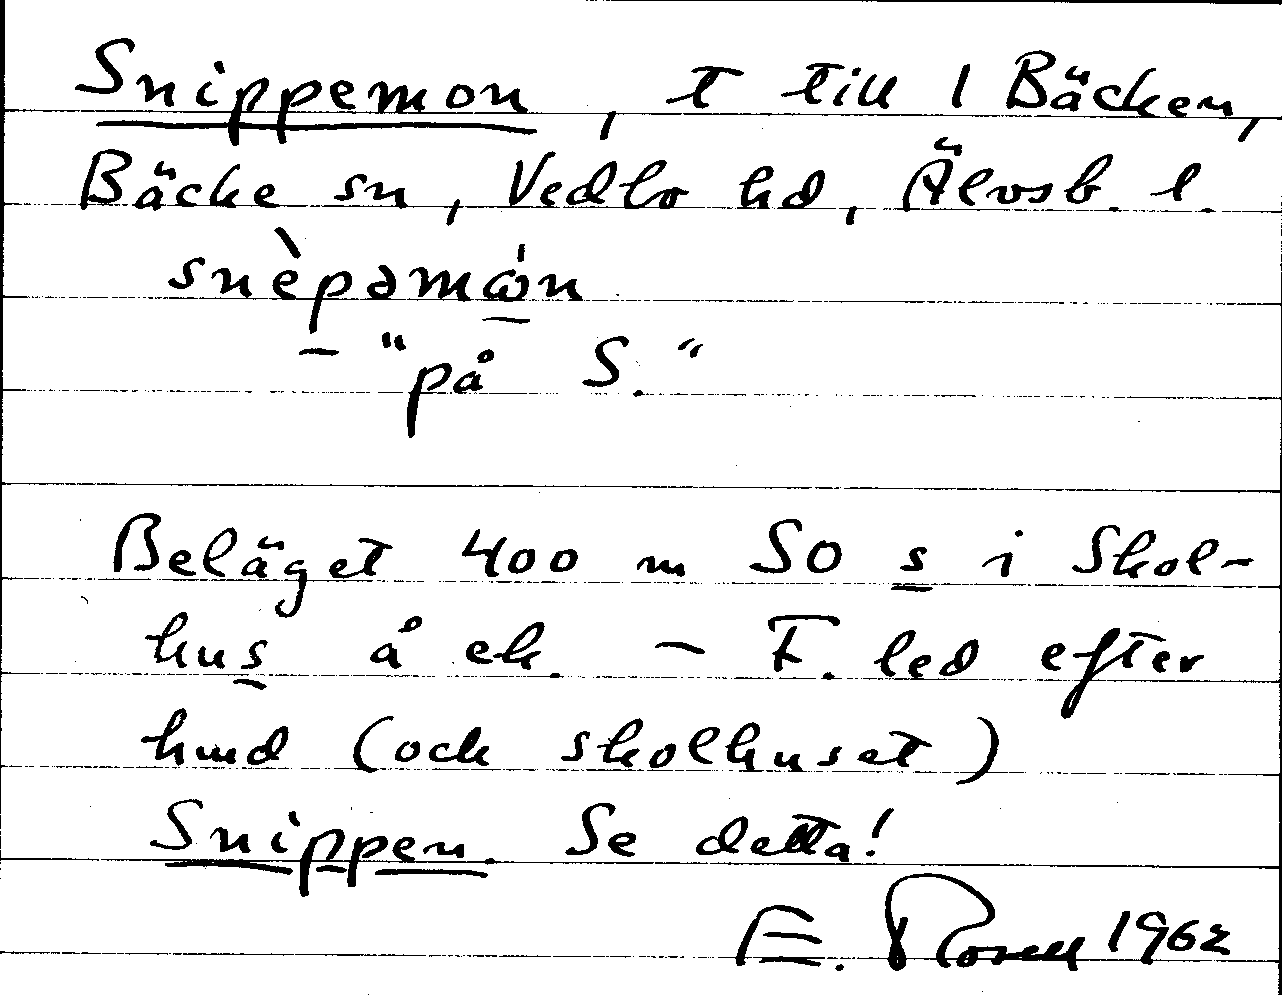 Snippemon, t till 1 Bäcken,
Bäcke sn, Vedbo hd, Älvsb. l.
snèpəmɷ́n
"på S."
Beläget 400 m SO s i Skol-
hus å ek. – F. led efter
hmd (och skolhuset)
Snippen. Se detta!
E. Rosell 1962